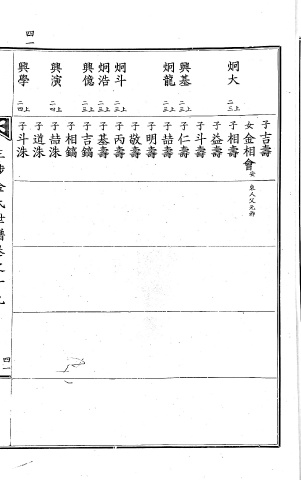 子吉壽
女金相會
炯大 上二三 子相壽
子益壽
子斗壽
興基 上二三 子仁壽
炯龍 上二三 子喆壽
子明壽
子敬壽
炯斗 上二三 子丙壽
炯浩 上二三 子基壽
興億 上二三 子吉鎬
子相鎬
興演 上二四 子喆洙
子道洙
興學 上二四 子斗洙
四一
三陟金氏世譜卷之十九
四一